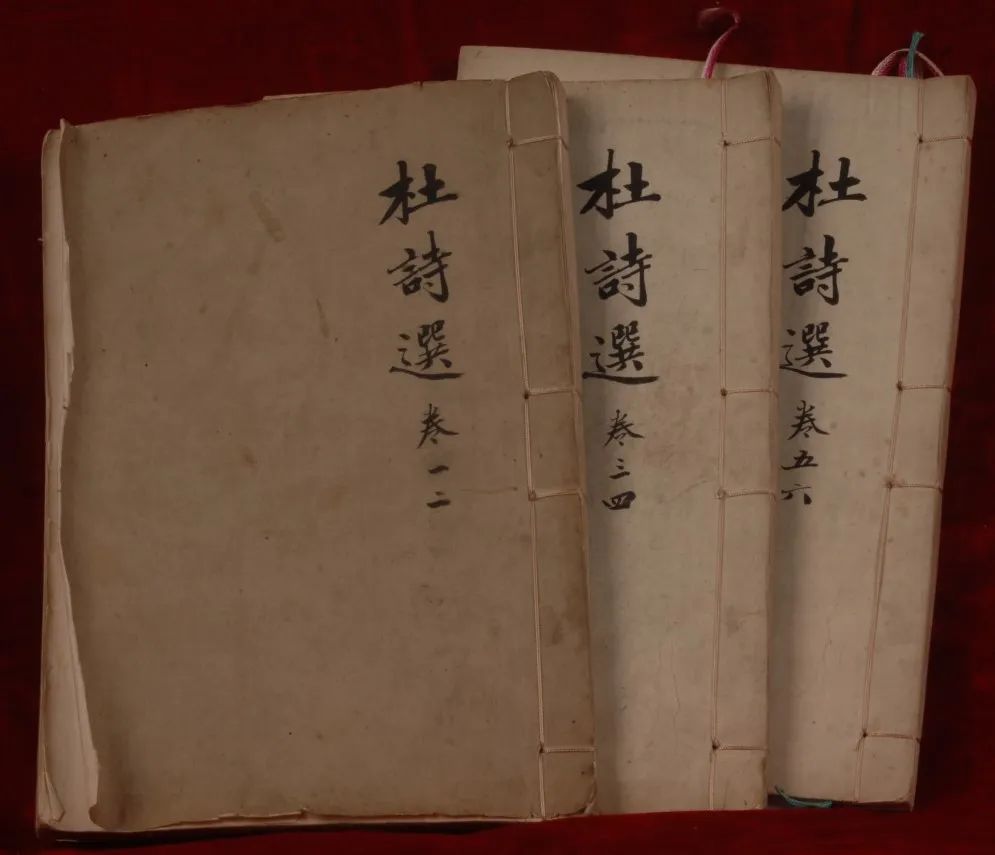 杜詩選 卷一二
杜詩選 卷三四
杜詩選 卷五六